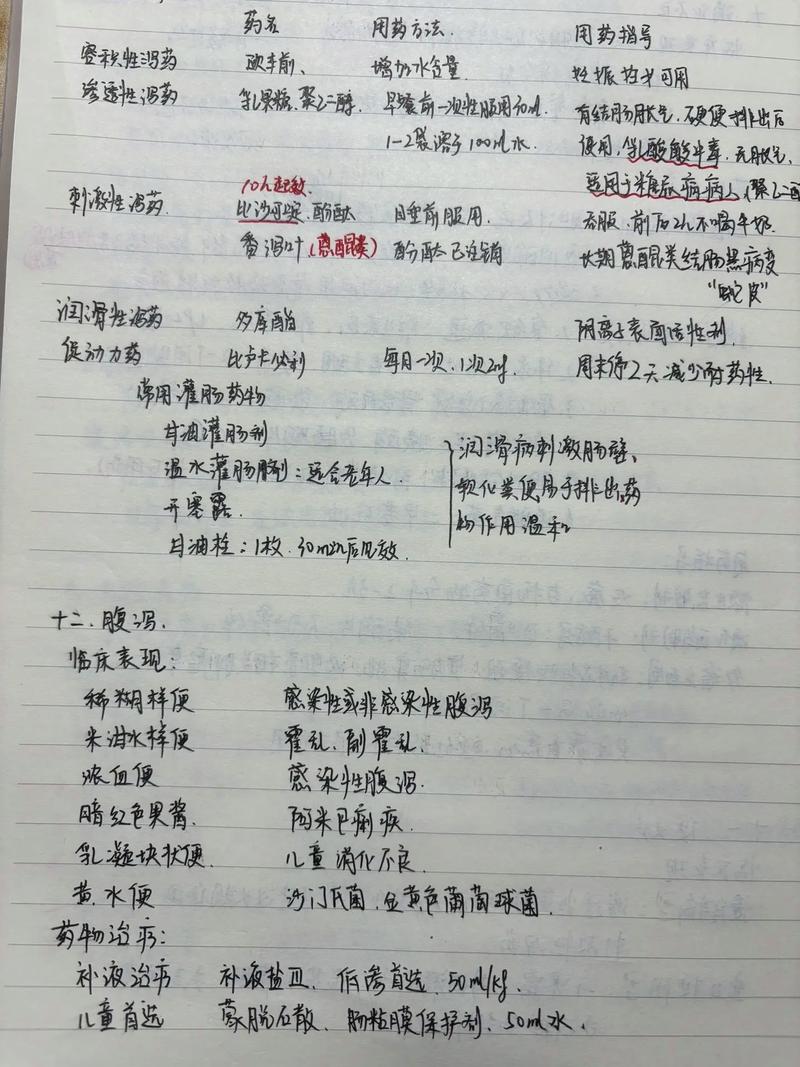 药名 用药方法. 用药指导
容积性泻药 欧车前、 增加水含量. 妊娠均可用
渗透性泻药 乳果糖、聚乙二醇. 早餐前一次性服用30ml. 有结肠胀气、硬便排出后
1-2袋溶于100ml水. 使用,乳酸酸中毒、无胀气,
适用于糖尿病病人(聚乙二醇
10h起效.
刺激性泻药. 比沙可啶、酚酞 睡前服用. 吞服,前后2h不喝牛奶.
番泻叶(蒽醌类) 酚酞已注销 长期蒽醌类结肠黑病变
“蛇皮”
润滑性泻药 多库酯 阴离子表面活性剂.
促动力药 比卢卡必利 每日一次、1次2mg. 周末停2天减少耐药性.
常用灌肠药物
甘油灌肠剂
温水灌肠剂:适合老年人. 润滑病刺激肠壁、
开塞露. 软化粪便易于排出,药
甘油栓:1枚.30min后见效. 物作用温和
十二.腹泻.
临床表现:
稀糊样便 感染性或非感染性腹泻
米泔水样便 霍乱、副霍乱.
浓血便 感染性腹泻.
暗红色果酱. 阿米巴痢疾.
乳凝块状便. 儿童消化不良.
黄.水便 沙门氏菌、金黄色葡萄球菌.
药物治疗:
补液治疗 补液盐Ⅲ、低渗首选、50ml/kg.
儿童首选 蒙脱石散、肠粘膜保护剂、50ml水.